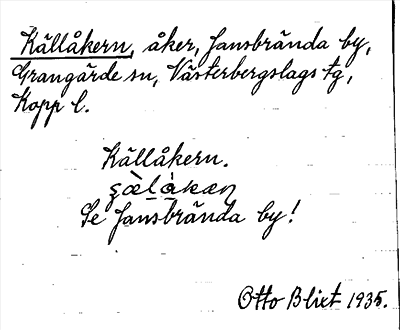 Källåkern, åker, Jansbrända by,
Grangärde sn, Västerbergslags tg,
Kopp. l.
Källåkern.
Se Jansbrända by!
Otto Blixt 1935.